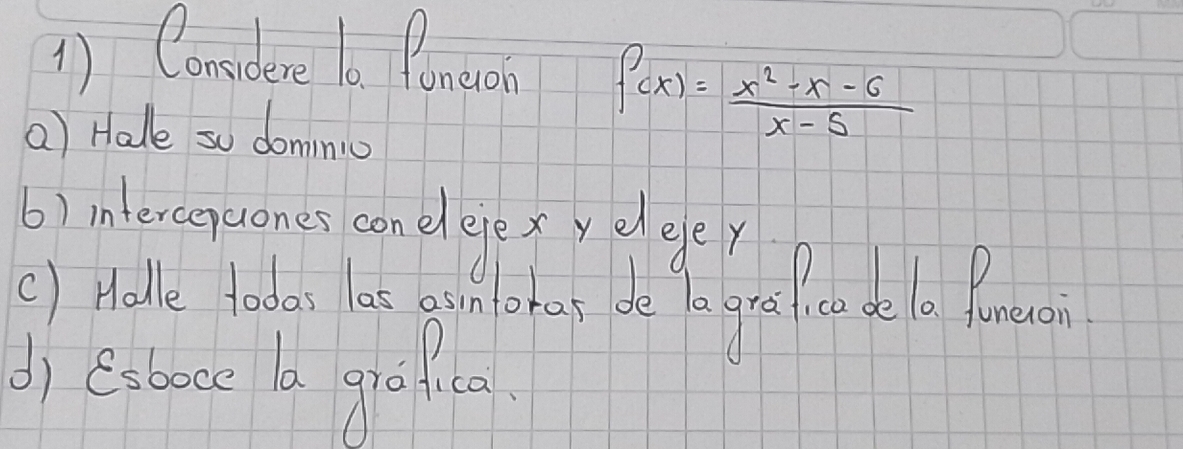 1) Considere la función f(x) = (x² - x - 6)/(x - 5)
a) Halle su dominio
b) intercepciones con el eje x y el eje y
c) Halle todas las asintotas de la gráfica de la función.
d) Esboce la gráfica.